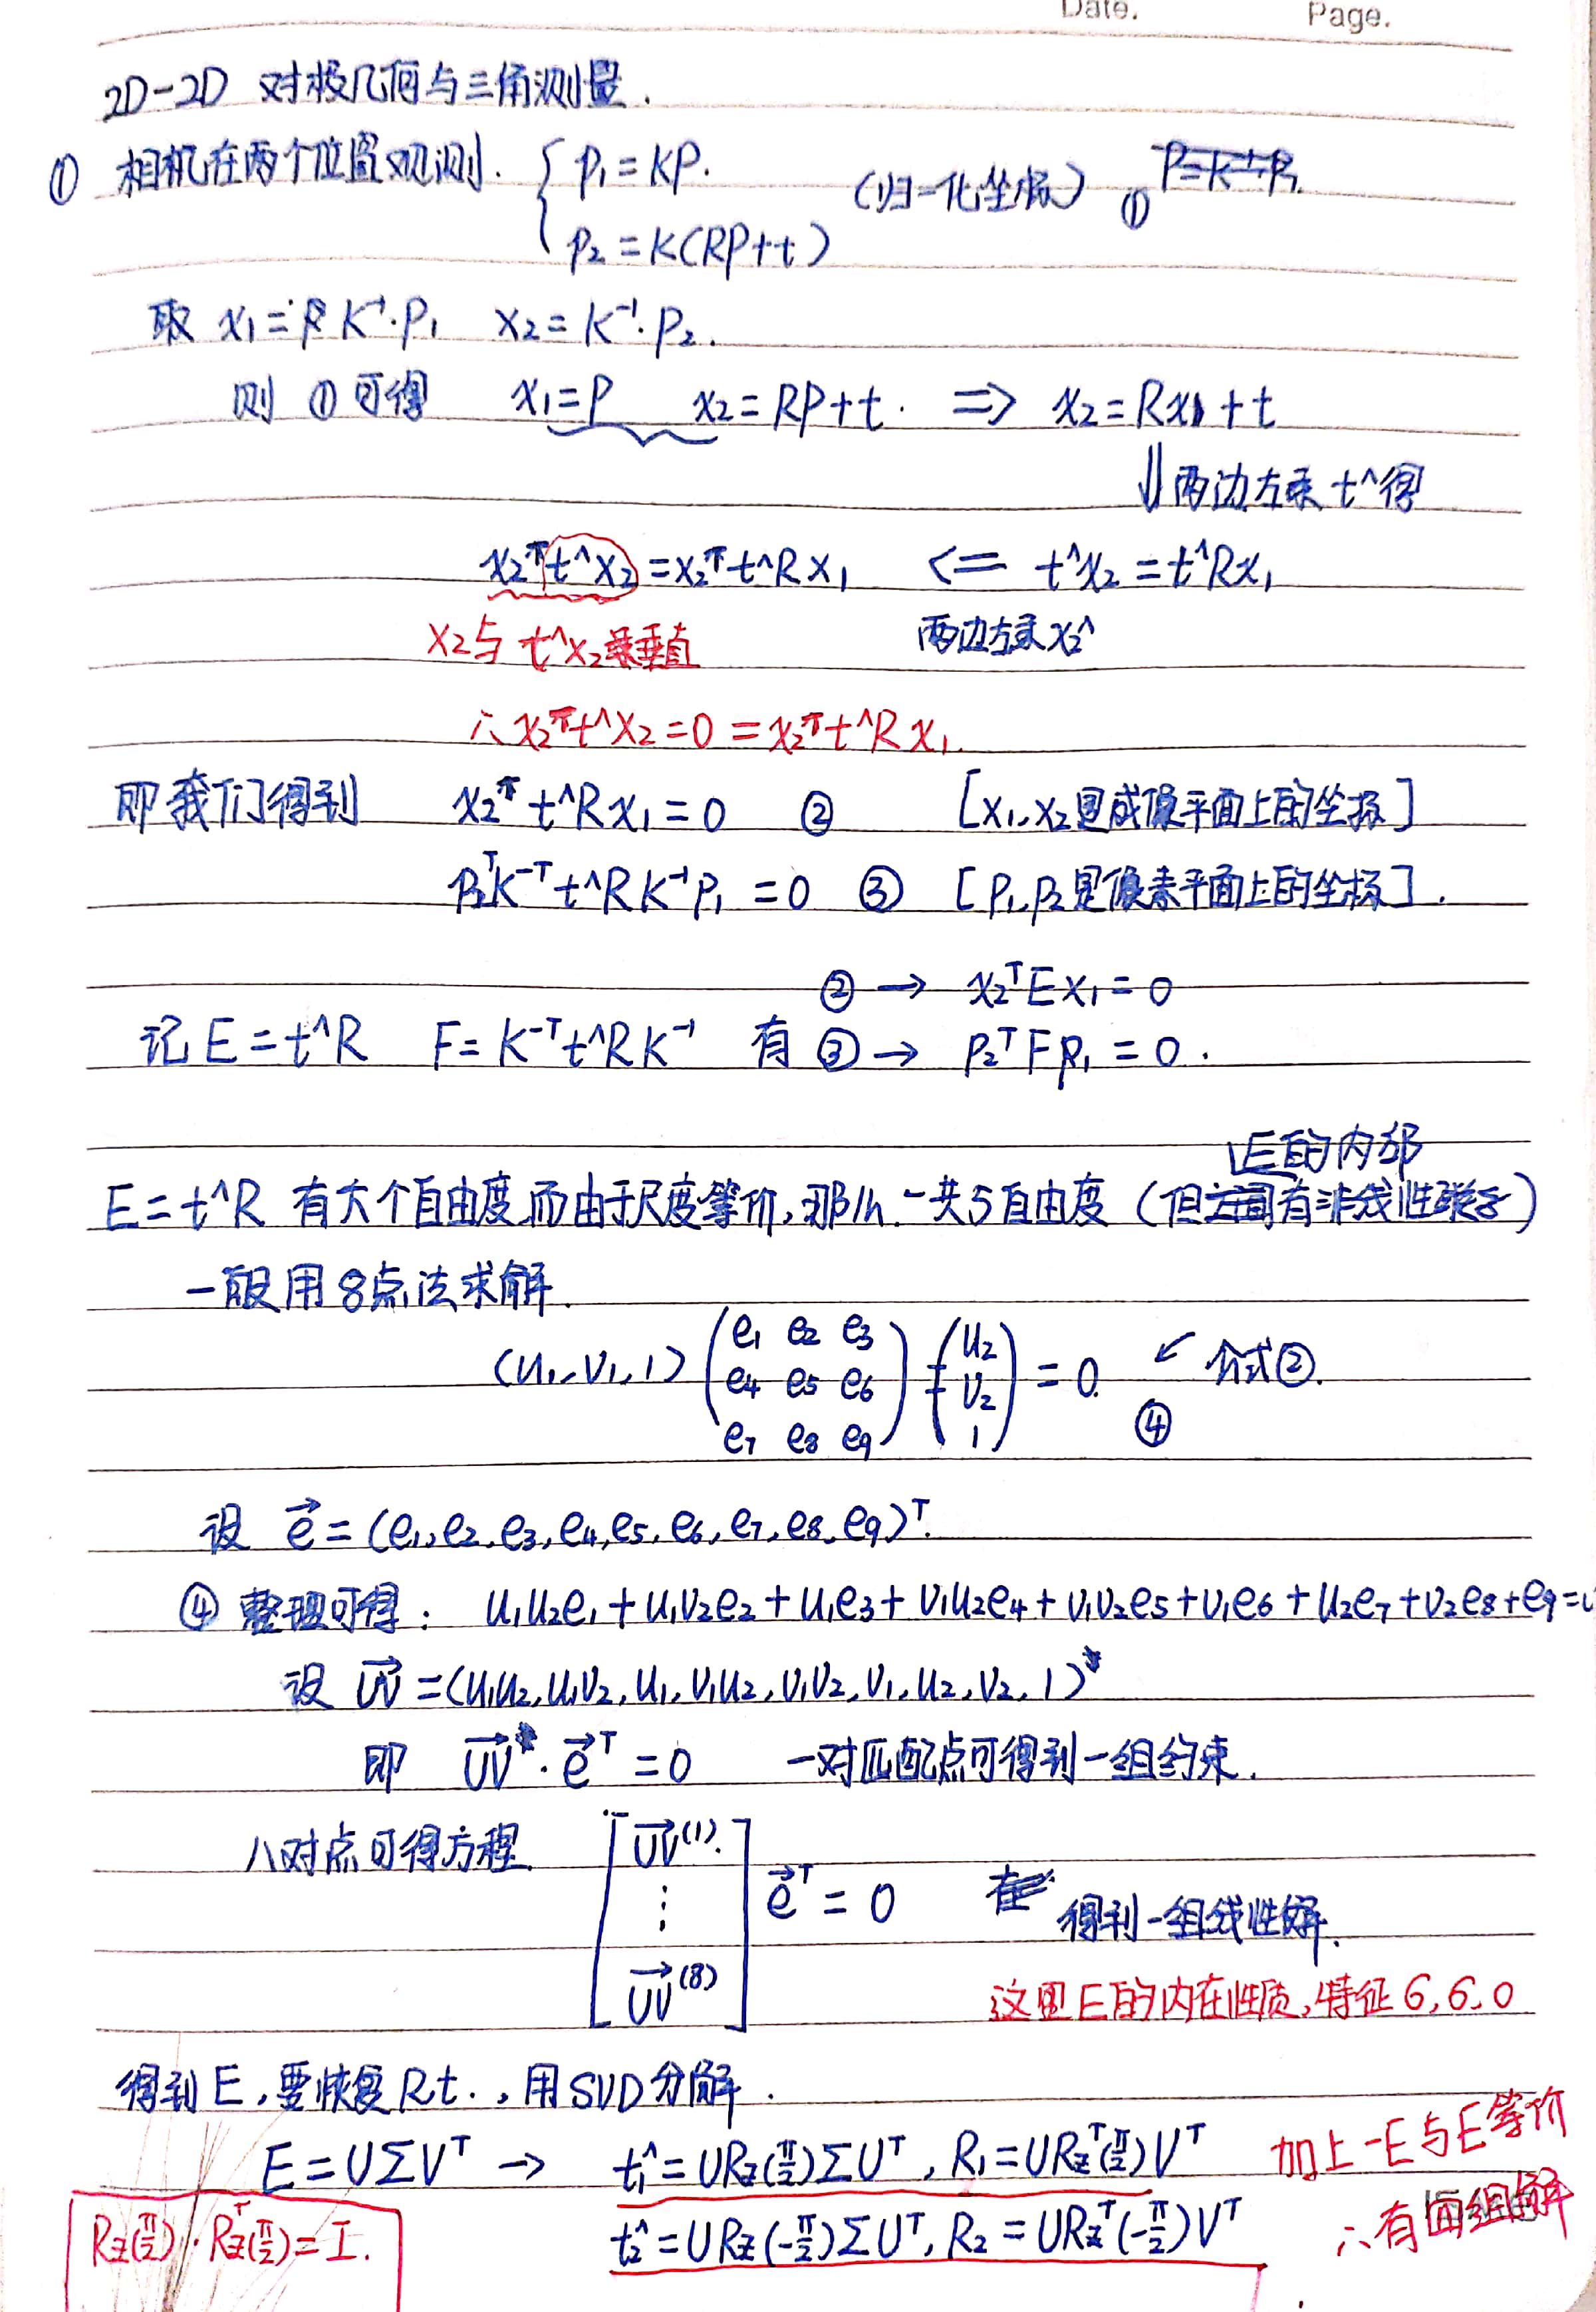 Date. Page.
2D-2D 对极几何与三角测量.
① 相机在两个位置观测. { p₁=KP. (归一化坐标) ①
p₂=K(RP+t)
取 x₁= K⁻¹·p₁ x₂=K⁻¹·p₂.
则 ①可得 x₁=P x₂=RP+t. ⇒ x₂=Rx₁+t
⇓ 两边左乘 t^得
x₂ᵀt^x₂=x₂ᵀt^Rx₁ <= t^x₂=t^Rx₁
x₂与 t^x₂垂直 两边左乘x₂^
∴ x₂ᵀt^x₂=0=x₂ᵀt^Rx₁.
即我们得到 x₂ᵀt^Rx₁=0 ② [x₁,x₂是成像平面上的坐标]
p₂ᵀK⁻ᵀt^RK⁻¹p₁=0 ③ [p₁,p₂是像素平面上的坐标].
② → x₂ᵀEx₁=0
记 E=t^R F=K⁻ᵀt^RK⁻¹ 有 ③→ p₂ᵀFp₁=0.
E的内部
E=t^R 有六个自由度,而由于尺度等价,那么一共5自由度 (但 有非线性)
一般用8点法求解.
(u₁,v₁,1) (e₁ e₂ e₃ (u₂
e₄ e₅ e₆) v₂ =0. ↙ 公式②.
e₇ e₈ e₉ 1) ④
设 e⃗=(e₁,e₂,e₃,e₄,e₅,e₆,e₇,e₈,e₉)ᵀ.
④ 整理可得: u₁u₂e₁+u₁v₂e₂+u₁e₃+v₁u₂e₄+v₁v₂e₅+v₁e₆+u₂e₇+v₂e₈+e₉=
设 UV⃗=(u₁u₂,u₁v₂,u₁,v₁u₂,v₁v₂,v₁,u₂,v₂,1)
即 UV⃗·e⃗ᵀ=0 一对匹配点可得到一组约束.
八对点可得方程. [UV⃗⁽¹⁾.
⋮ ] e⃗ᵀ=0 得到一组线性解.
UV⃗⁽⁸⁾ 这里E的内在性质,特征6,6,0
得到E,要恢复Rt.,用SVD分解.
E=UΣVᵀ → t₁^=UR_Z(π/2)ΣUᵀ, R₁=UR_Zᵀ(π/2)Vᵀ 加上-E与E等价
R_Z(π/2)·R_Zᵀ(π/2)=I. t₂^=UR_Z(-π/2)ΣUᵀ, R₂=UR_Zᵀ(-π/2)Vᵀ ∴有四组解